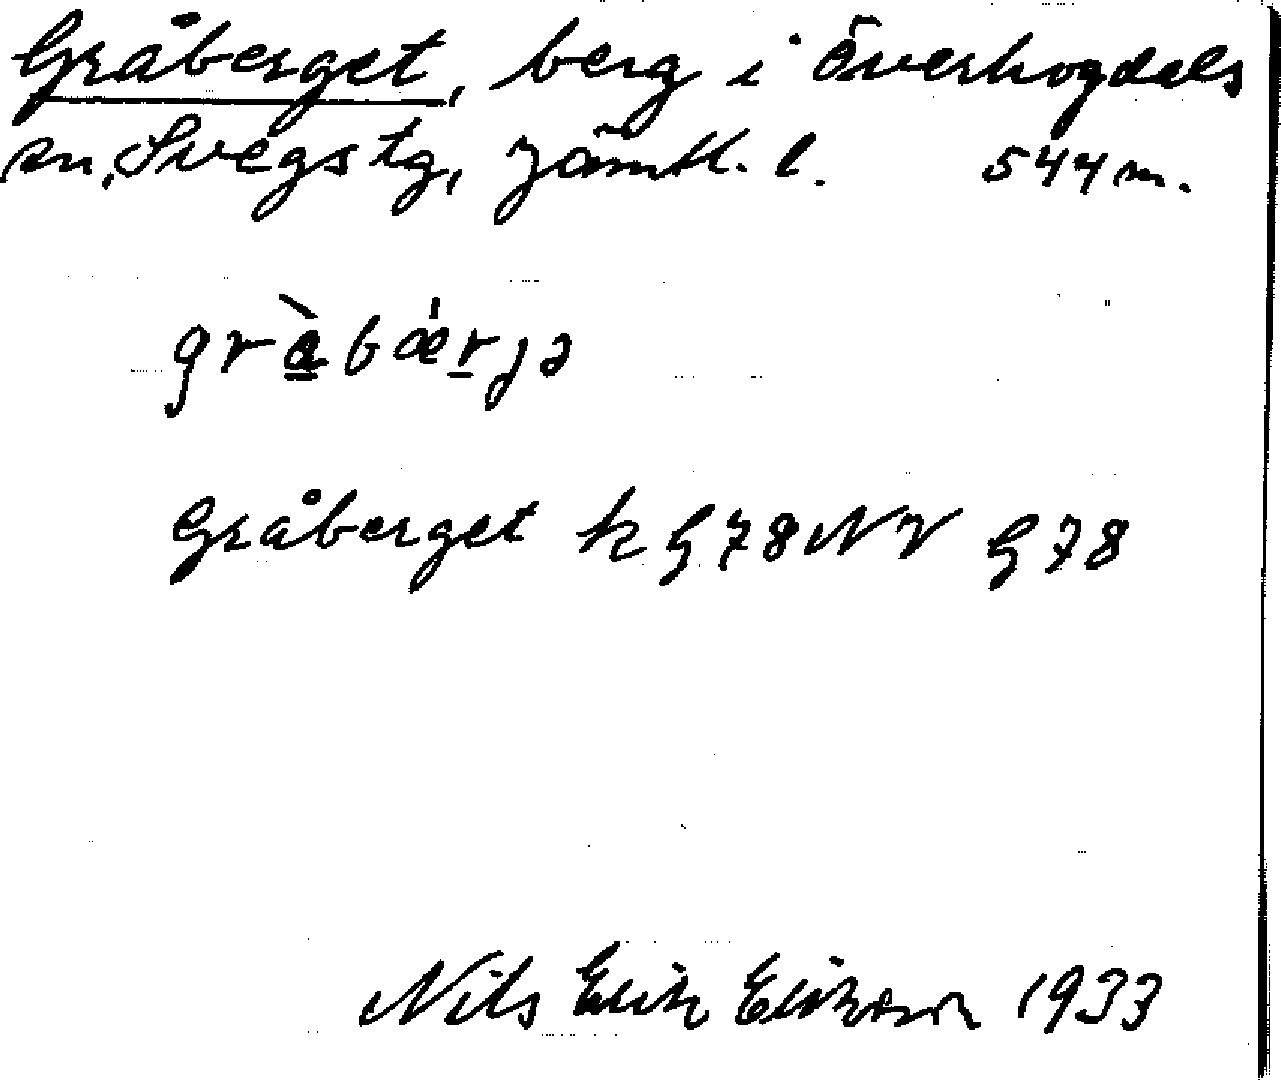 Gråberget, berg i Överhogdals
sn, Svegs tg, Jämtl. l. 544 m.
gràbǽrjə
Gråberget k G 78 NV G 78
Nils Erik Eriksson 1933